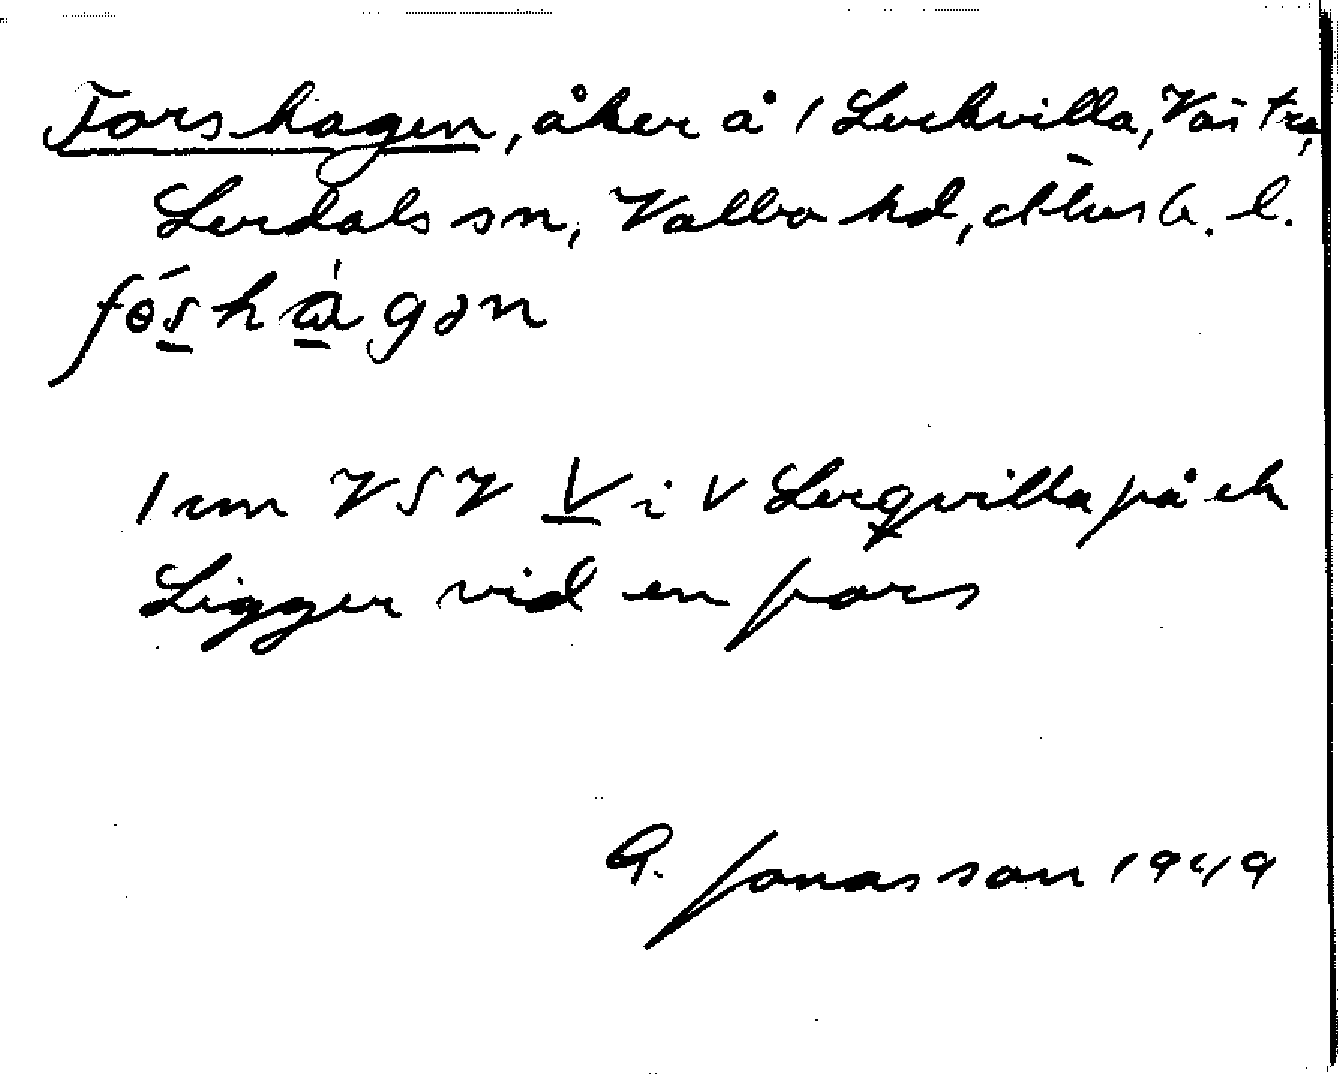 Forshagen, åker å 1 Lerkvilla, Västra,
Lerdals sn, Valbo hd, Älvsb. l.
fɵ́shàgən
1 cm VSV V i V Lerqvilla på ek
Ligger vid en fors
G. Jonasson 1949